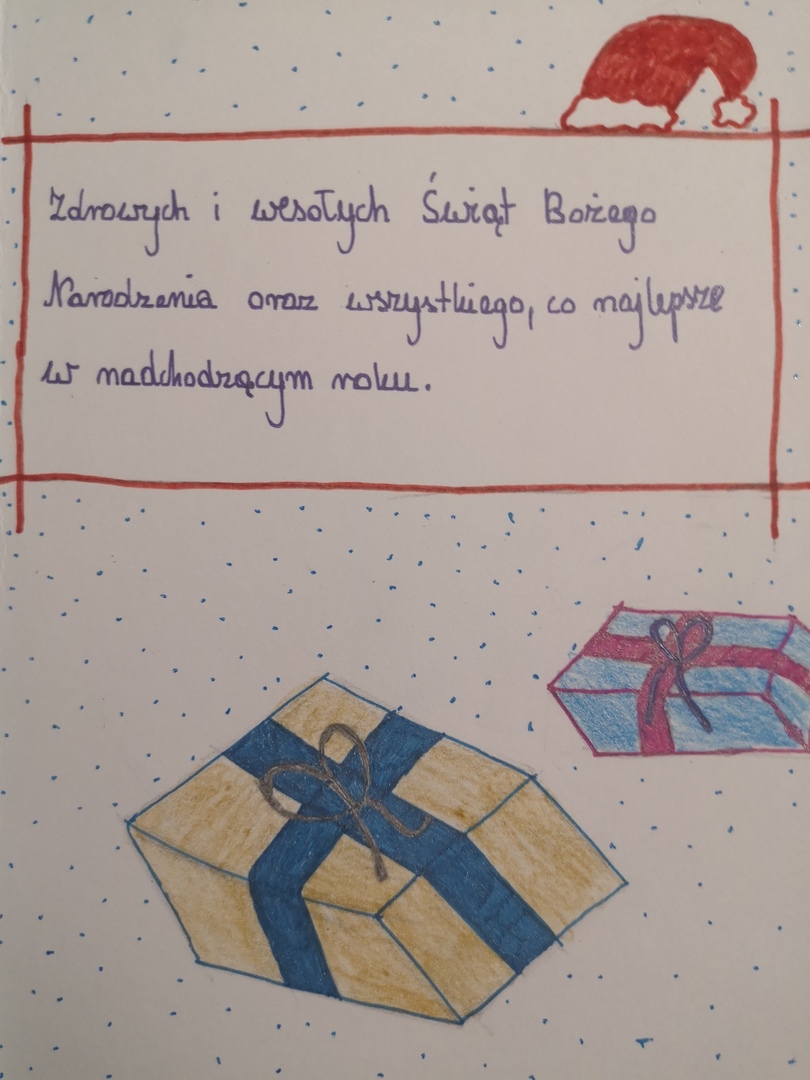 Zdrowych i wesołych Świąt Bożego
Narodzenia oraz wszystkiego, co najlepsze
w nadchodzącym roku.